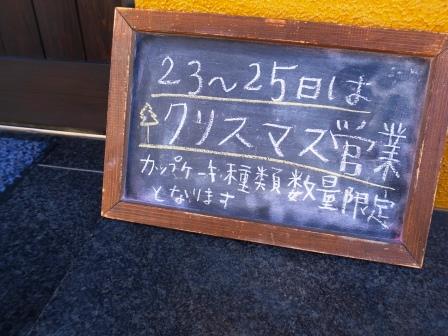 23〜25日は
クリスマス営業
カップケーキ種類数量限定
となります